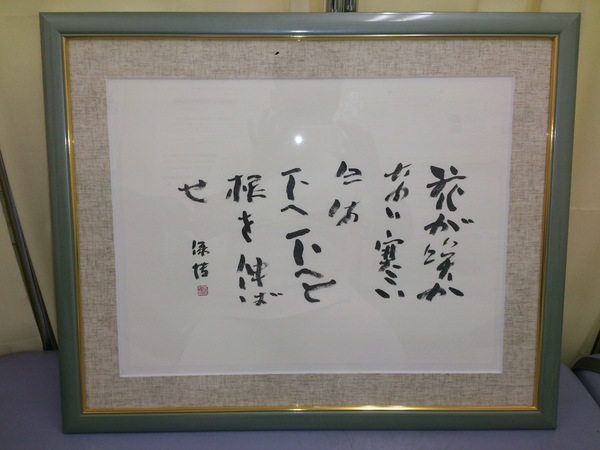 花が咲か
ない寒い
日は
下へ下へと
根を伸ば
せ